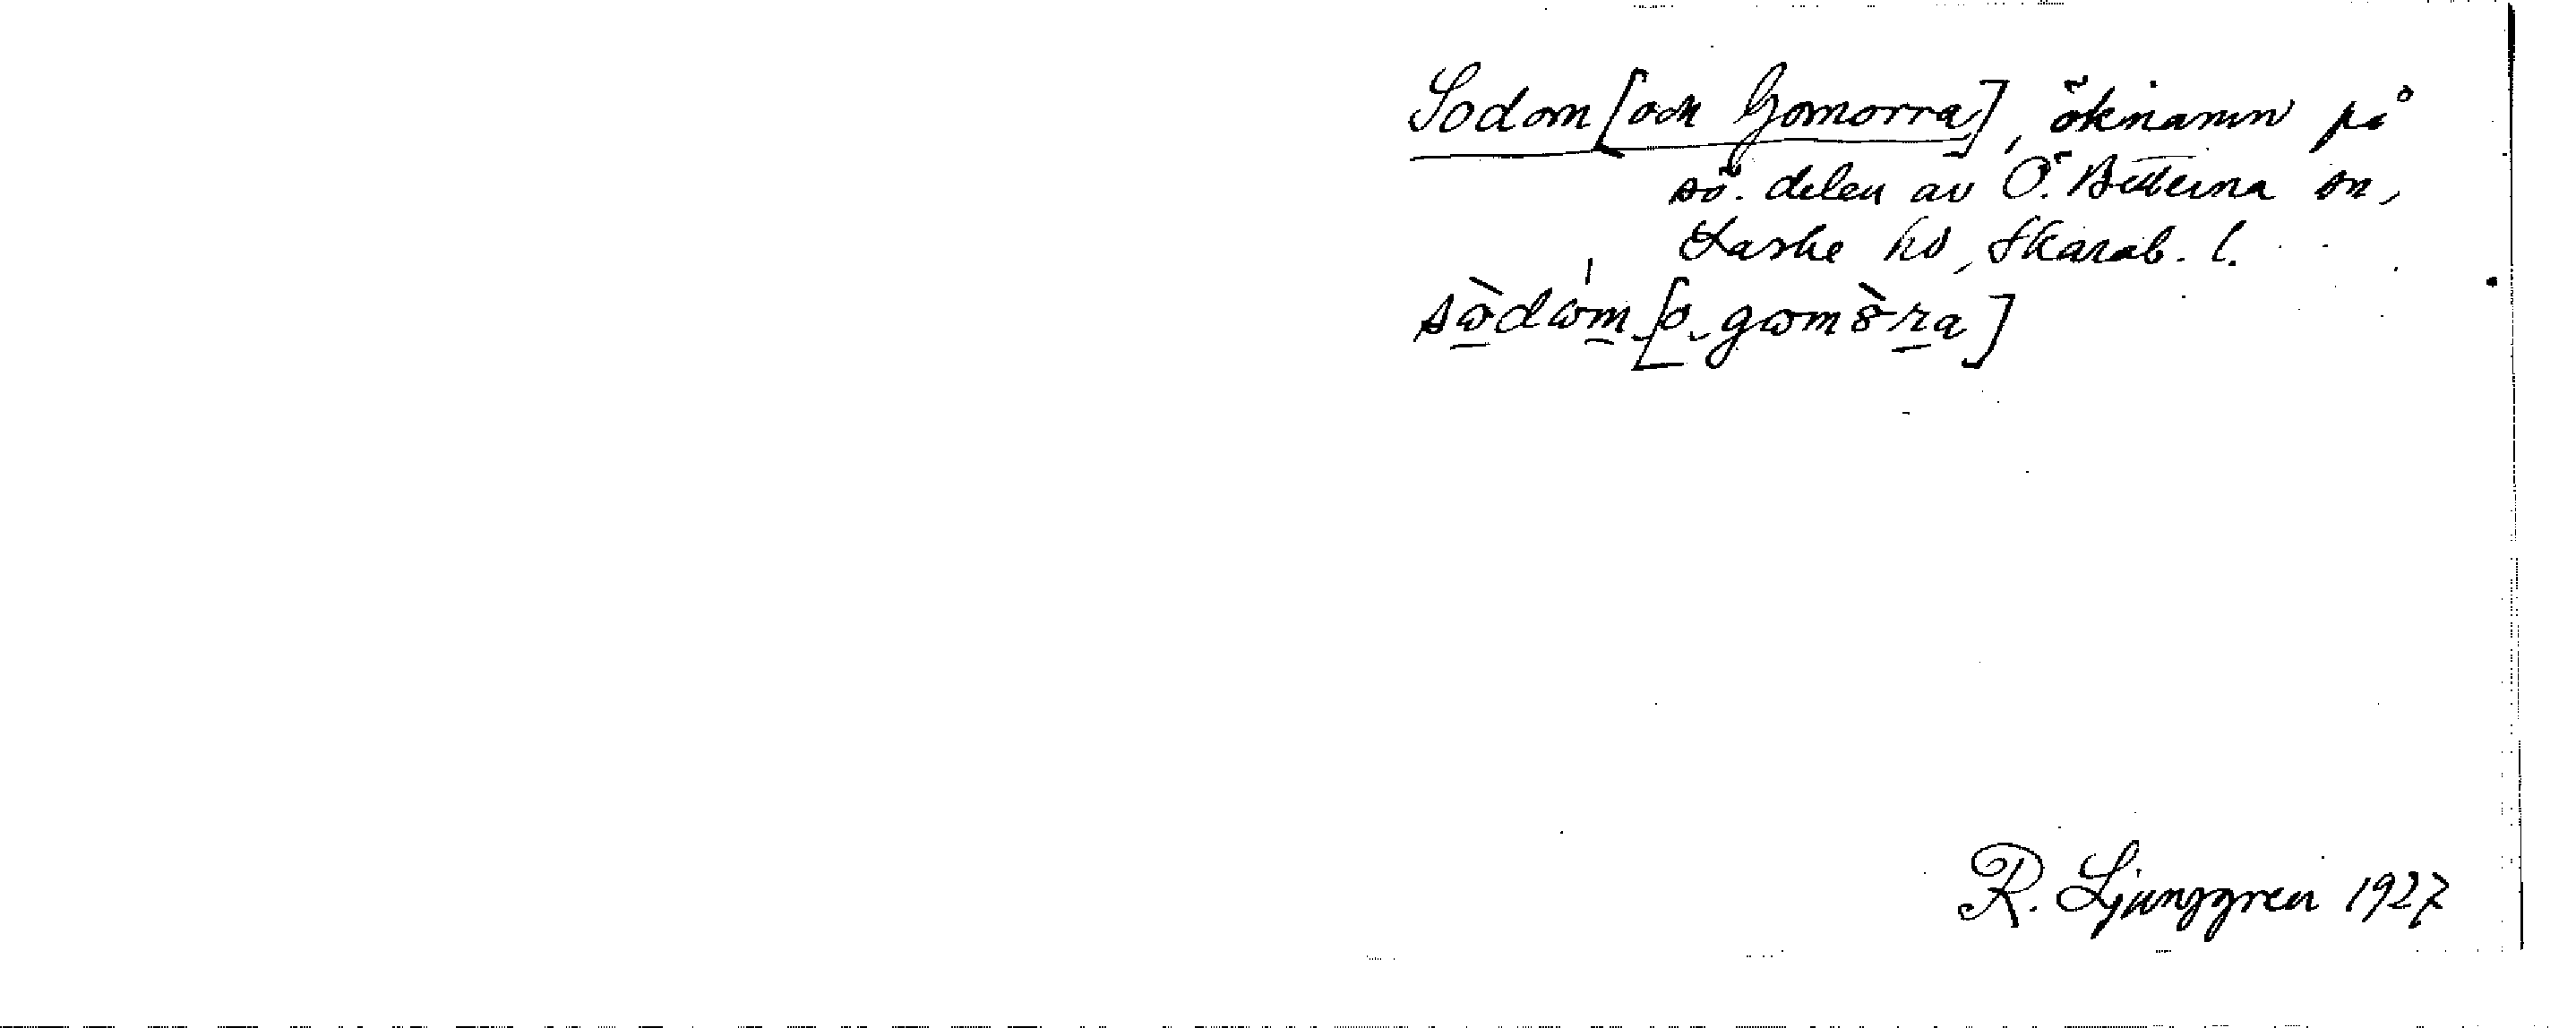 Sodom [och Gomorra], öknamn på
sö. delen av Ö. Bitterna sn,
Laske hd, Skarab. l.
sὼdωm [o gωmὸra]
R. Ljunggren 1927